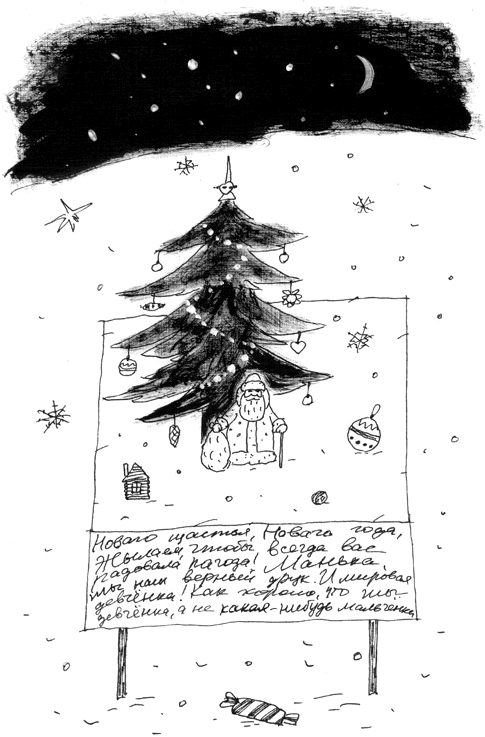 Новаго щастья, Новаго года,
Жылаем, чтобы всегда вас
радовала пагода! Манька,
ты наш верный друк. И мировая
девчёнка! Как хорошо, что ты
девчёнка, а не какая-нибудь мальчёнка